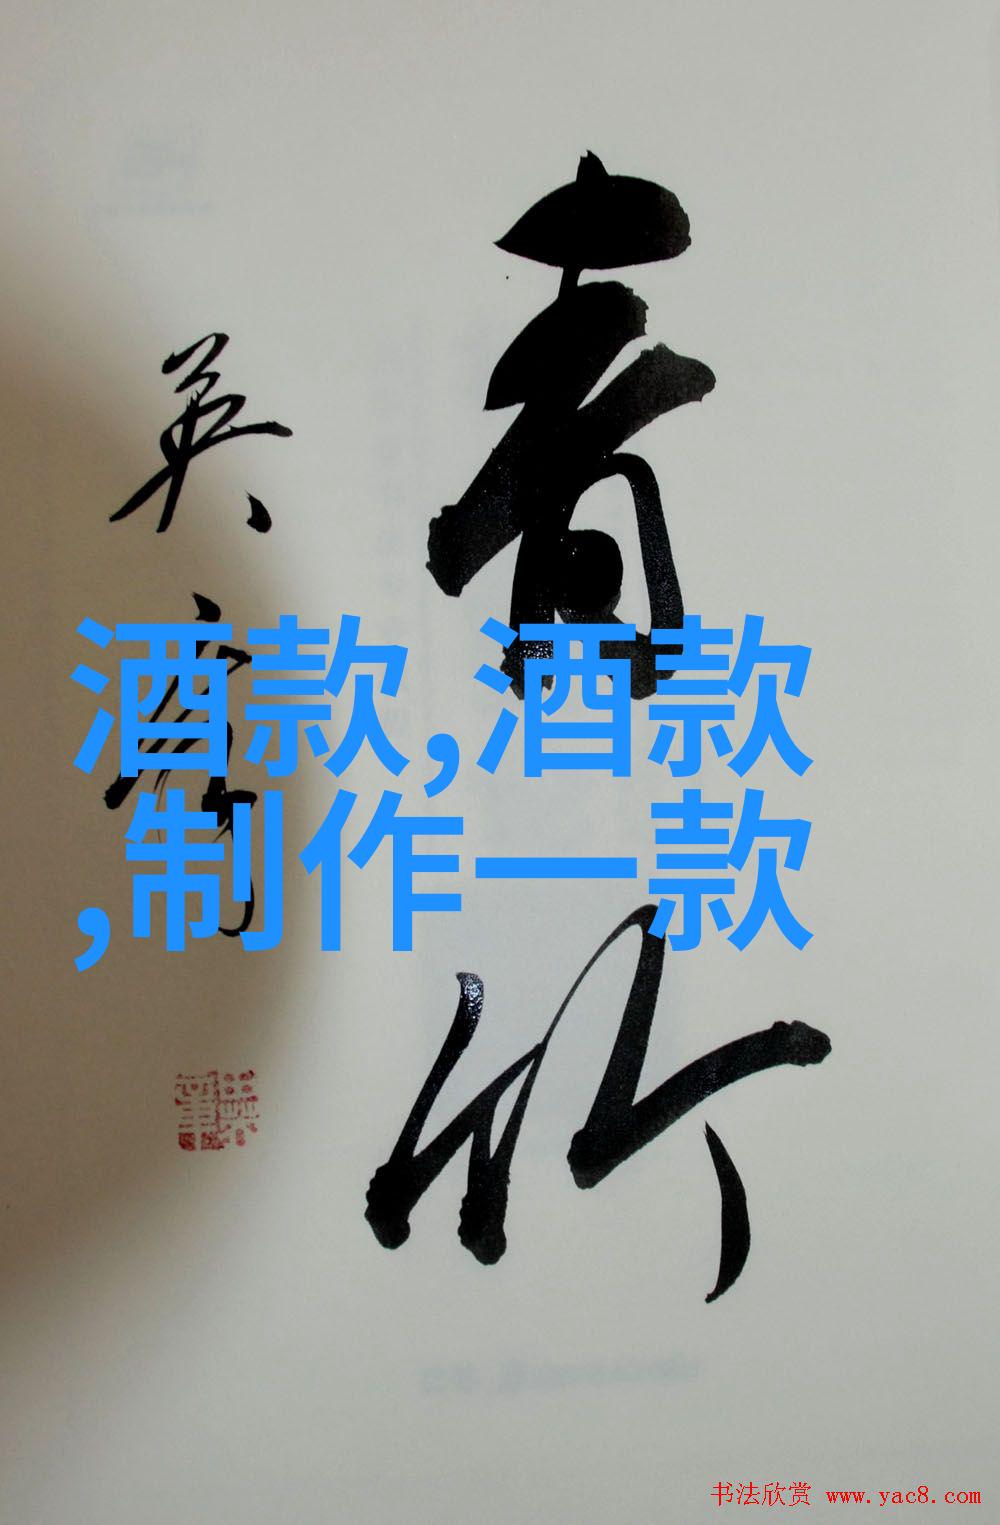 青竹
英彦
酒款,酒款
,制作一款
书法欣赏 www.yac8.com